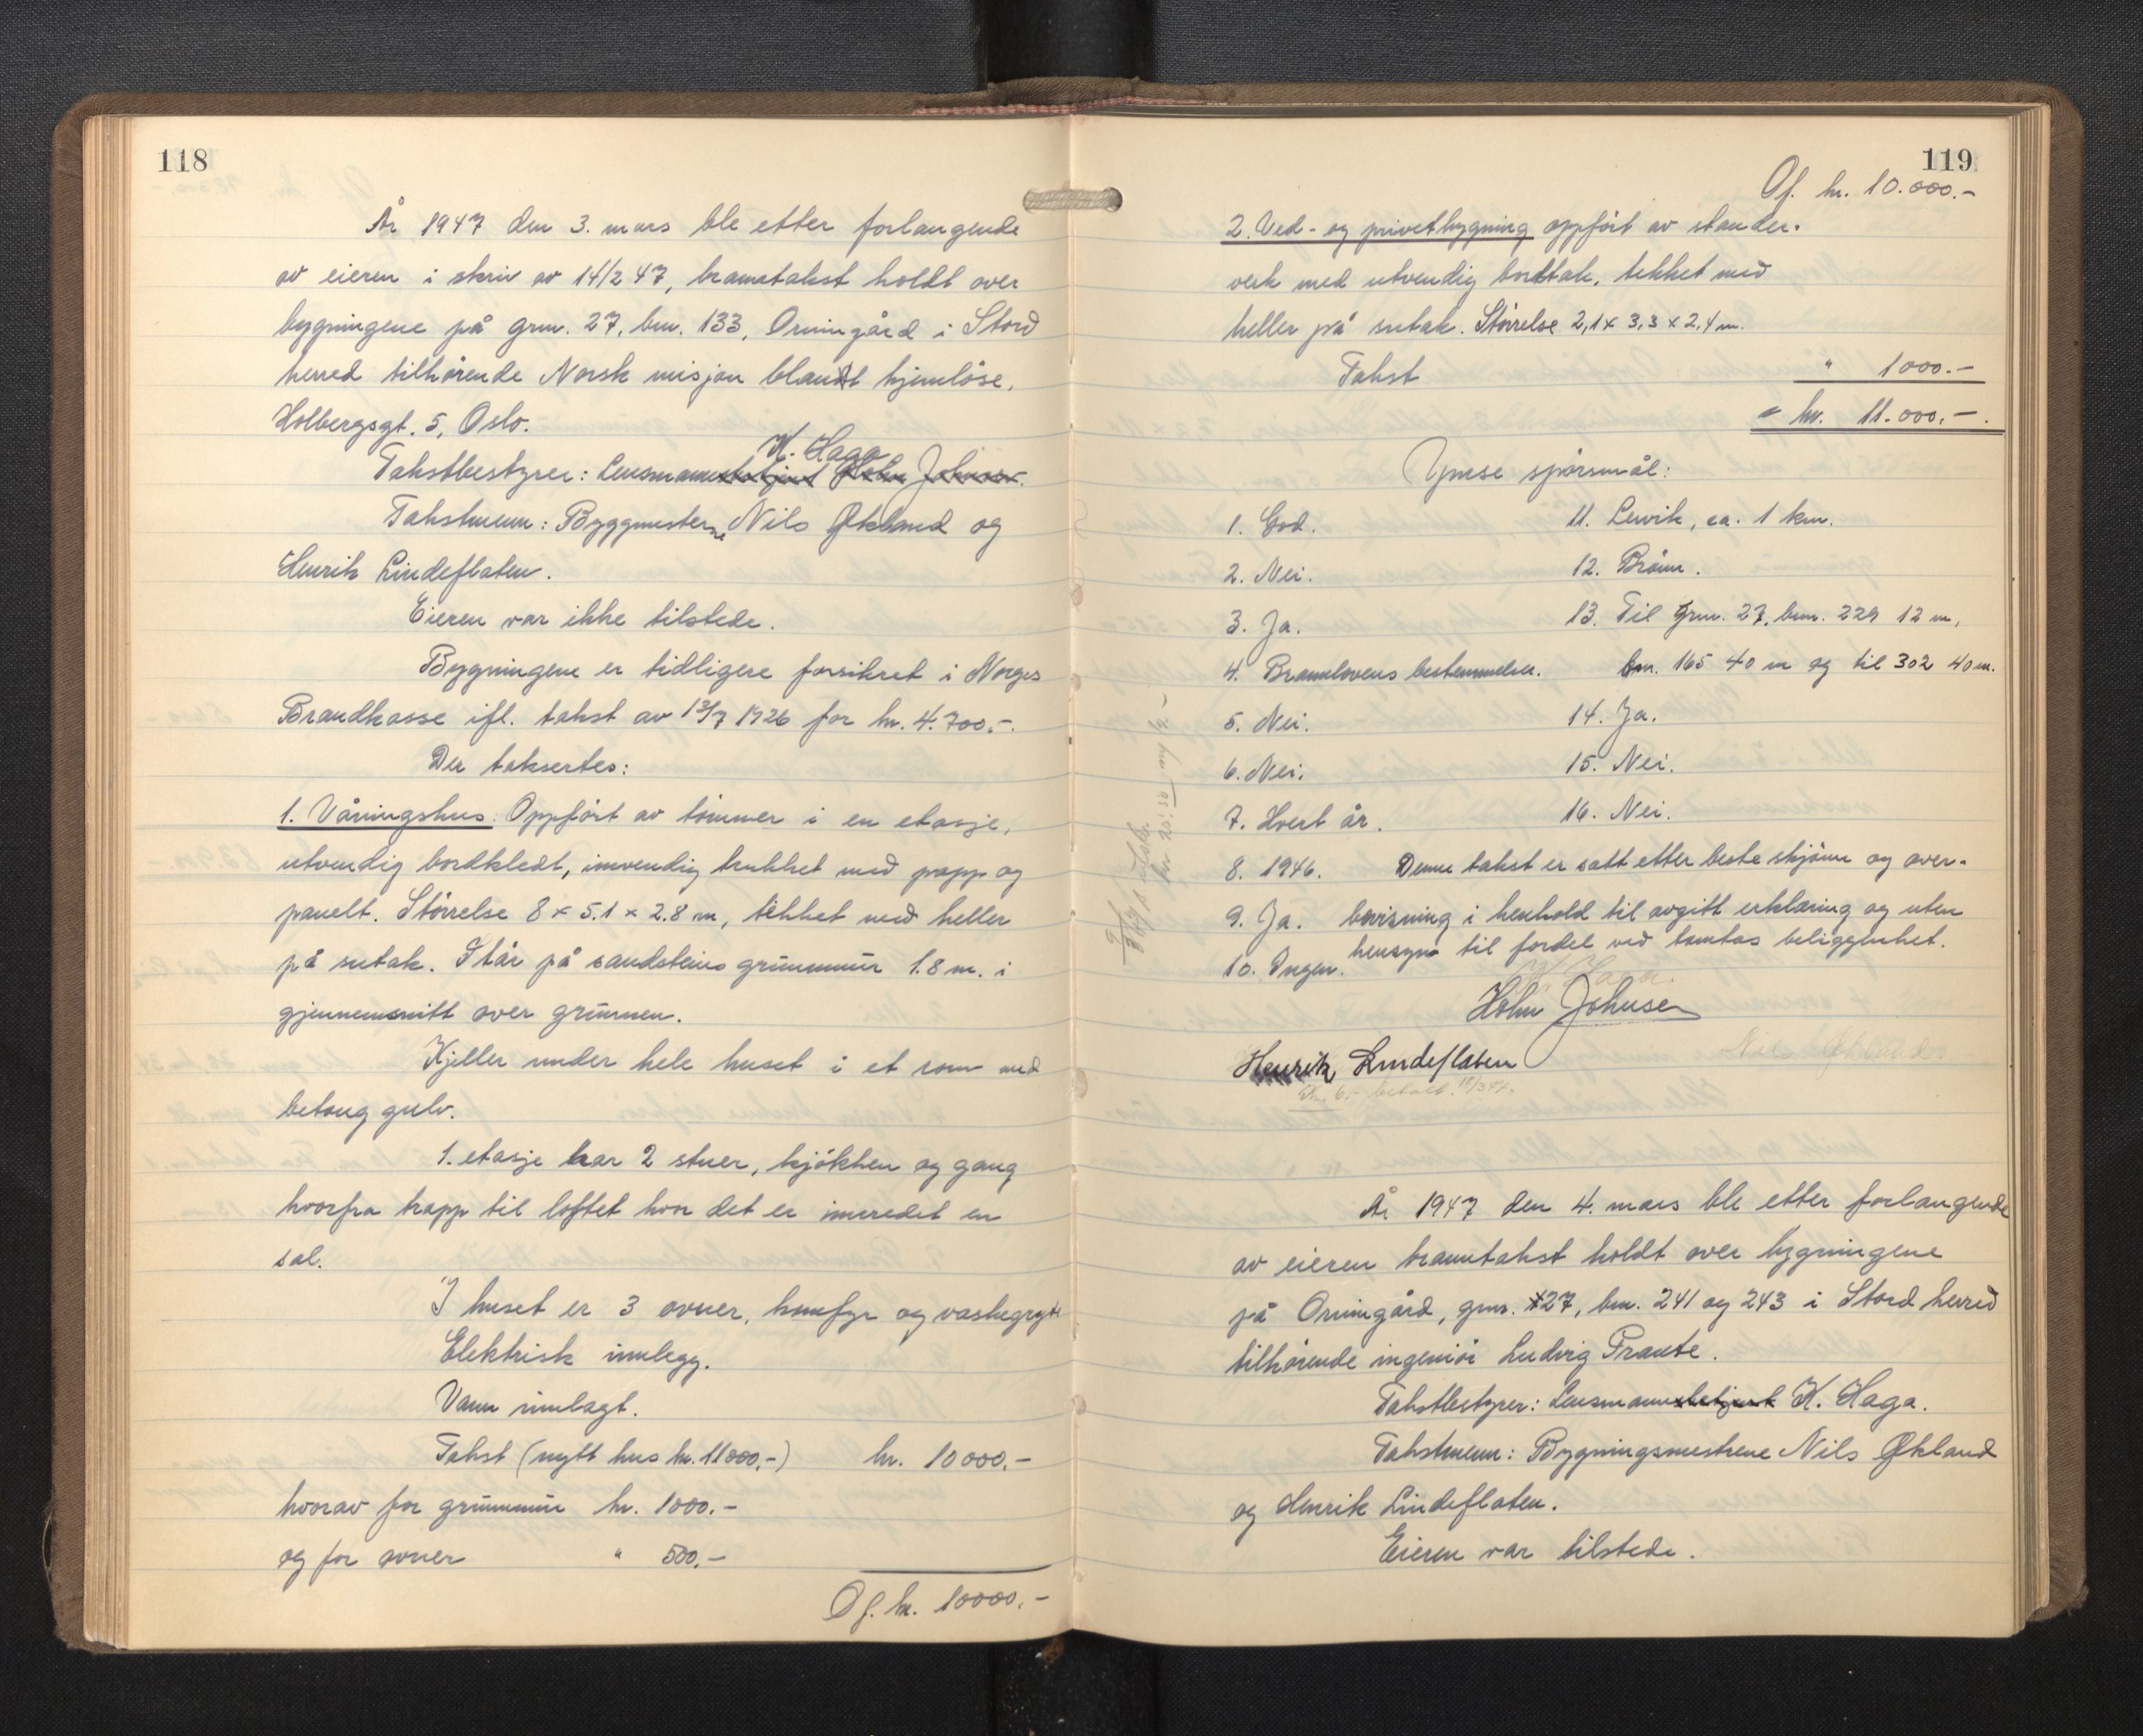 118
År 1947 den 3. mars ble etter forlangende
av eieren i skriv av 14/2 47, branntakst holdt over
bygningene på grn. 27, bnr. 133, Orningård i Stord
herred tilhørende Norsk misjon blandt hjemløse,
Holbergsgt. 5, Oslo.
K. Haga
Takstbestyrer: Lensmannsbetjent Holm Johnsen.
Takstmenn: Byggmesterne Nils Økland og
Henrik Lindeflaten.
Eieren var ikke tilstede.
Bygningene er tidligere forsikret i Norges
Brandkasse ifl. takst av 13/7 1926 for kr. 4.700,-.
Der taksertes:
1. Våningshus: Oppført av tømmer i en etasje,
utvendig bordkledt, innvendig trukket med papp og
panelt. Størrelse 8 x 5.1 x 2.8 m, tekket med heller
på sutak. Står på sandsteins grunnmur 1.8 m. i
gjennemsnitt over grunnen.
Kjeller under hele huset i et rom med
betong gulv.
1. etasje har 2 stuer, kjøkken og gang
hvorfra trapp til loftet hvor det er innredet en
sal.
I huset er 3 ovner, komfyr og vaskegryte
Elektrisk innlegg.
Vann innlagt.
Takst (nytt hus kr. 11000.-) kr. 10000.-
hvorav for grunnmur kr. 1000.-
og for ovner " 500.-
Of. kr. 10000.-
119
Of. kr. 10.000.-
2. Ved- og privetbygning oppført av stender-
verk med utvendig bordtak, tekket med
heller på sutak. Størrelse 2,1 x 3,3 x 2,4 m.
Takst " 1000.-
= kr. 11.000.-.
Ymse spørsmål:
1. God.
2. Nei.
3. Ja.
4. Brannlovens bestemmelser.
5. Nei.
6. Nei.
7. Hvert år.
8. 1946.
9. Ja.
10. Ingen.
11. Lervik, ca. 1 km.
12. Brønn.
13. Til grn. 27, bnr. 229 12 m,
bnr. 165 40 m og til 302 40 m.
14. Ja.
15. Nei.
16. Nei.
Denne takst er satt etter beste skjønn og over-
bevisning i henhold til avgitt erklæring og uten
hensyn til fordel ved tomtas beliggenhet.
K. Haga.
Holm Johnsen
Nils Økland
Henrik Lindeflaten
Kr. 6,- betalt. 18/3 47.
År 1947 den 4. mars ble etter forlangende
av eieren branntakst holdt over bygningene
på Orningård, gnr. 27, bnr. 241 og 243 i Stord herred
tilhørende ingeniør Ludvig Prante.
Takstbestyrer: Lensmannsbetjent K. Haga.
Takstmenn: Bygningsmestrene Nils Økland
og Henrik Lindeflaten.
Eieren var tilstede.